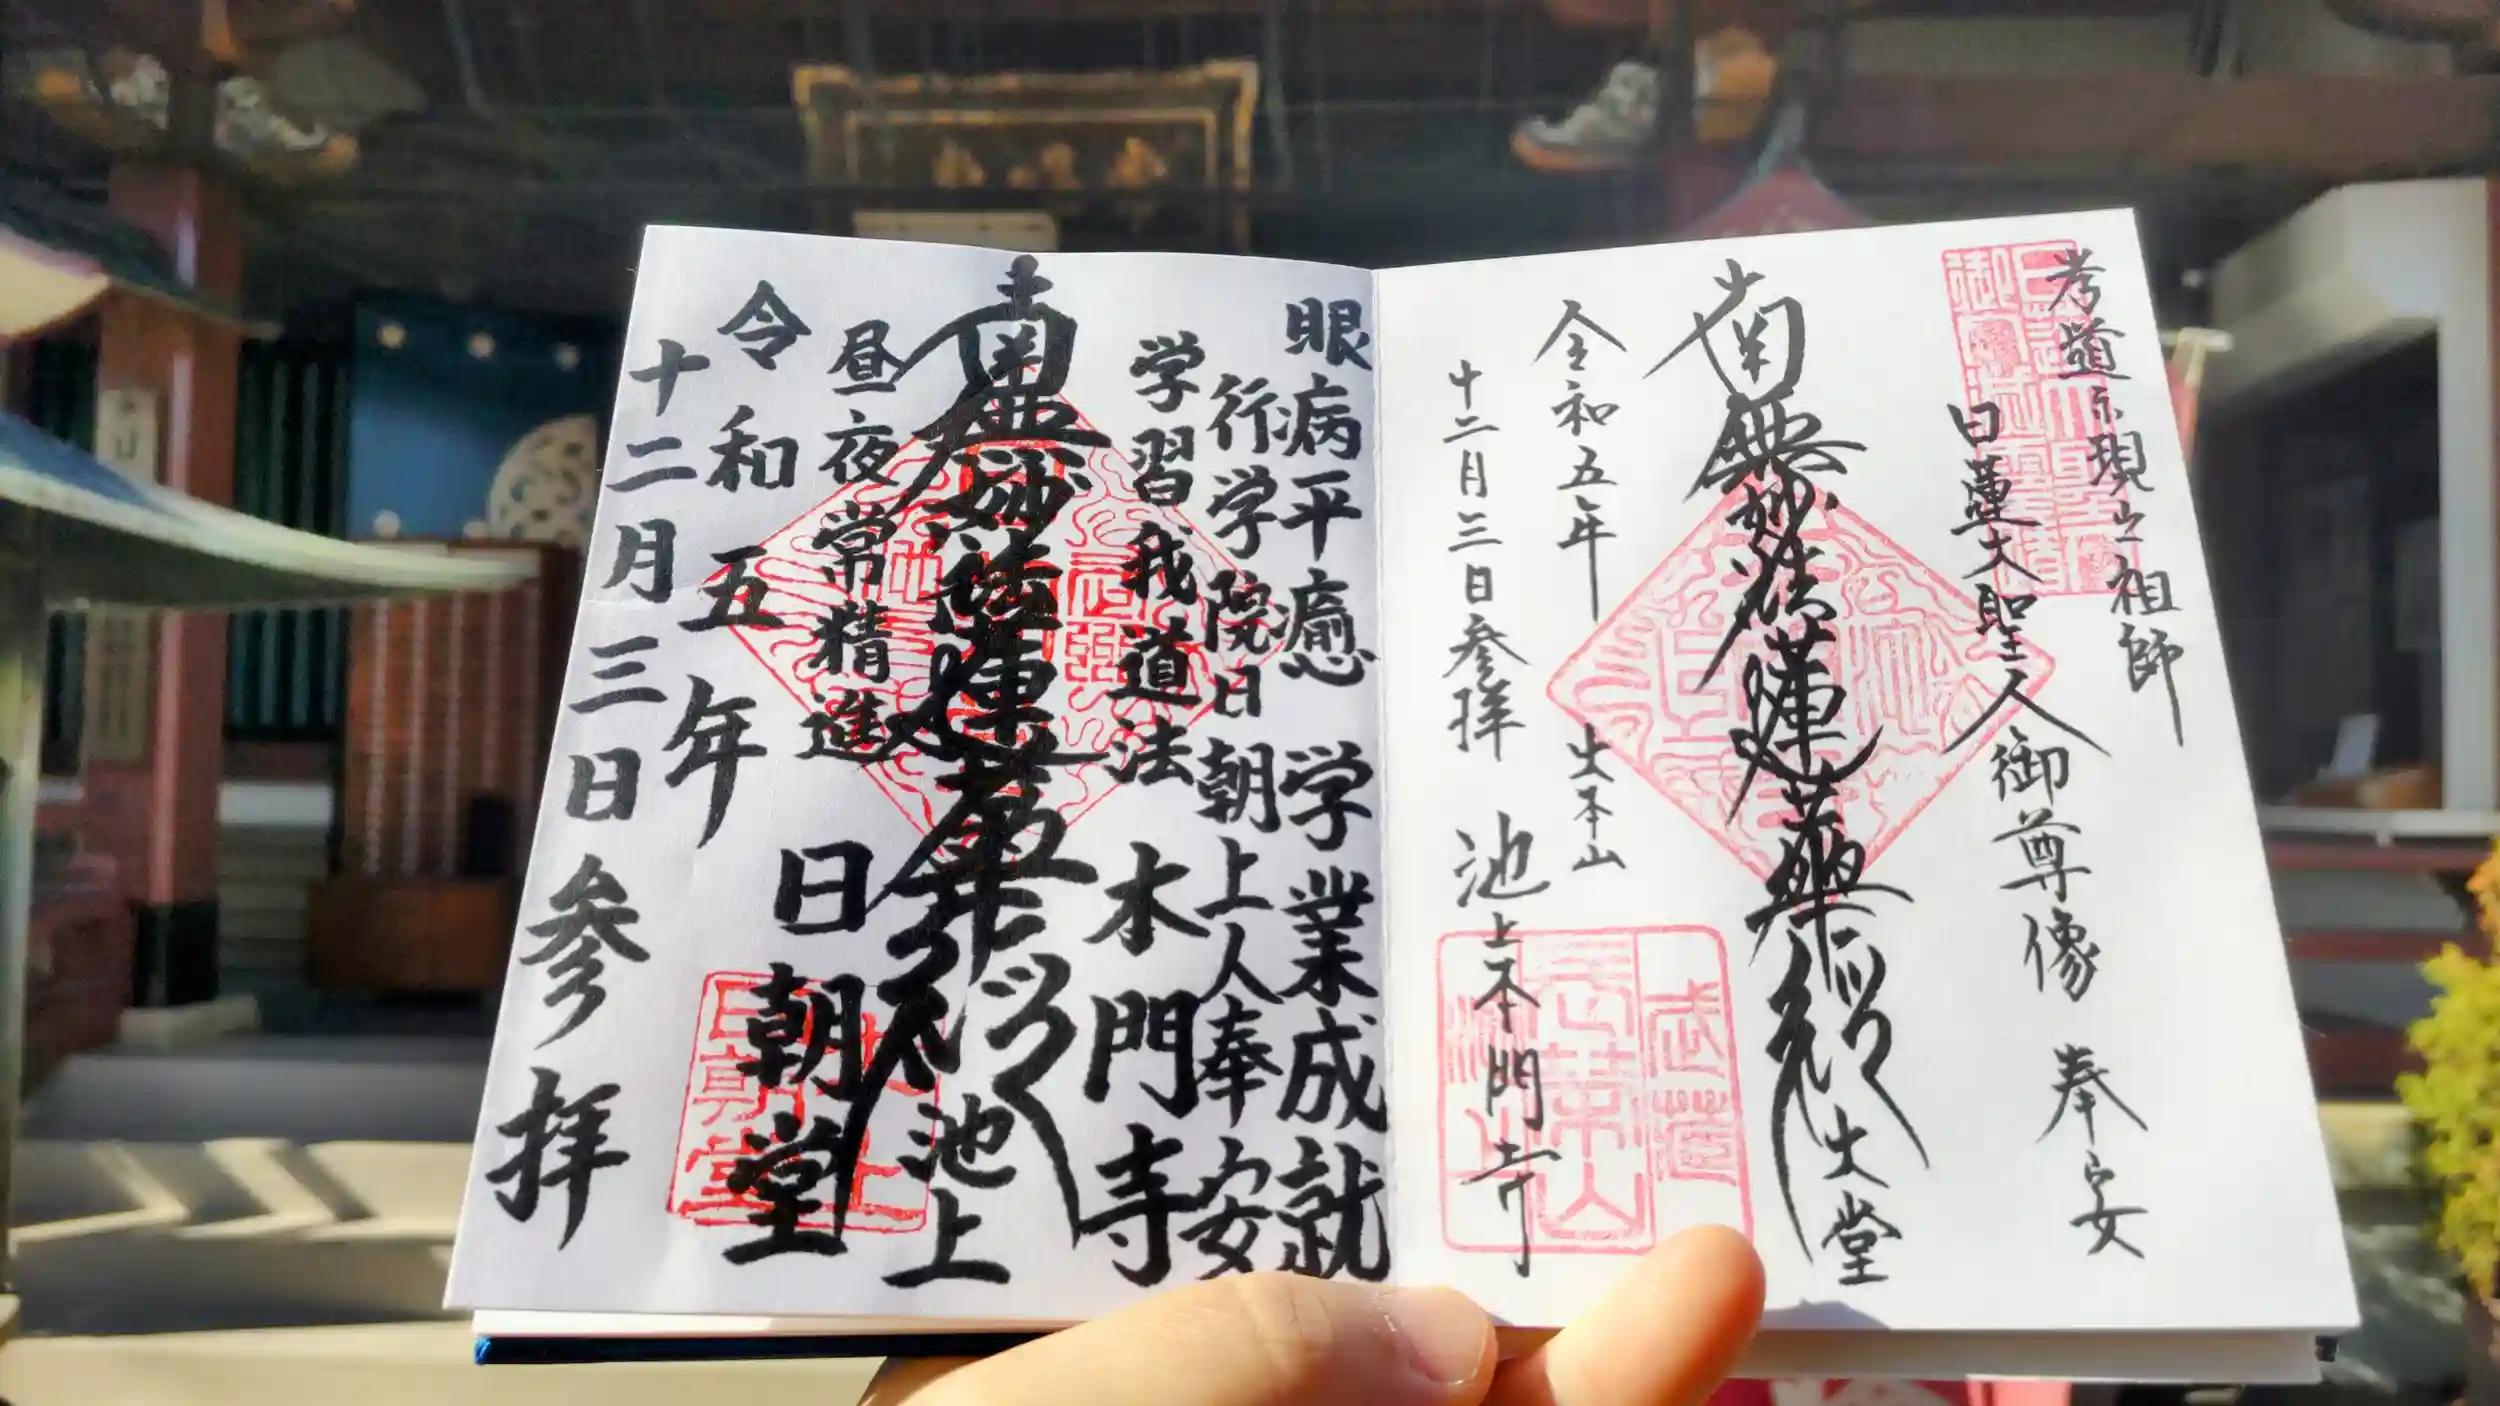 考道示現之祖師
日蓮大聖人御尊像 奉安
南無妙法蓮華経
大堂
令和五年
大本山
十二月三日参拝
池上本門寺
眼病平癒 学業成就
行学院日朝上人奉安
学習我道法
本門寺
南無妙法蓮華経
池上
昼夜常精進
日朝堂
令和五年
十二月三日参拝